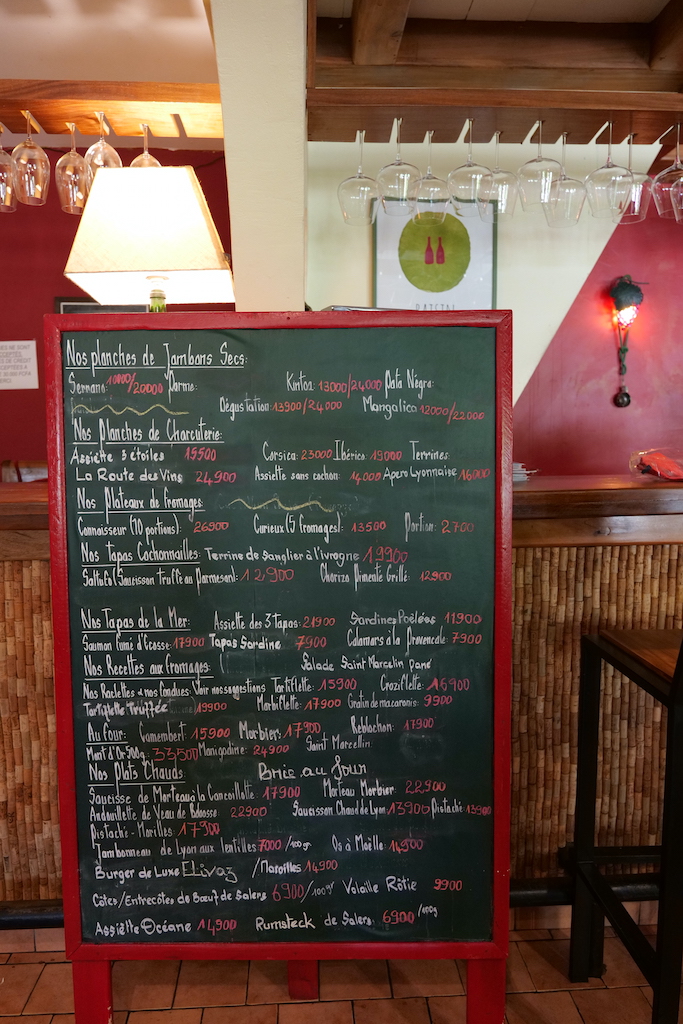 Nos planches de Jambons Secs:
Serrano: 10400/20000 Parme: Kintoa: 13000/24000 Pata Négra:
Dégustation: 13900/24000 Mangalica 12000/22000
Nos Planches de Charcuterie:
Assiette 3 étoiles 15500 Corsica: 23000 Ibérico: 19000 Terrines:
La Route des Vins 24900 Assiette sans cochon: 14000 Apero Lyonnaise 16000
Nos Plateaux de fromages:
Connaisseur (10 portions): 26900 Curieux (5 fromages): 13500 Portion: 2700
Nos tapas Cochonnailles: Terrine de Sanglier à l'ivrogne 13900
(Saucisson Truffé au Parmesan): 12900 Chorizo Pimenté Grillé: 12900
Nos Tapas de la Mer: Assiette des 3 Tapas: 21900 Sardines Poêlées 11900
Saumon fumé d'Ecosse: 17900 Tapas Sardine 7900 Calamars à la Provencale: 7900
Nos Recettes aux fromages: Salade Saint Marcelin Pané
Nos Raclettes & nos fondues: Voir nos suggestions Tartiflette: 15900 Croziflette: 16900
Tartiflette Truffée 19900 Morbiflette: 17900 Gratin de macaronis: 9900
Au four: Camembert 15900 Morbier: 17900 Reblochon: 17900
Mont d'Or 500g: 33500 Manigodine: 24900 Saint Marcellin:
Nos Plats Chauds: Brie au four
Saucisse de Morteau à la Cancoillotte 17900 Morteau Morbier 22900
Andouillette de Veau de Bobosse: 22900 Saucisson Chaud de Lyon 13900 Pistaché 13900
Pistaché - Morilles: 17900
Jambonneau de Lyon aux lentilles 7000 /100gr Os à Moëlle: 14900
Burger de Luxe Elivaz /Maroilles 14900
Côtes/Entrecôtes de Bœuf de Salers 6900/100gr Volaille Rôtie 9900
Assiette Océane 14900 Rumsteck de Salers: 6900/100g